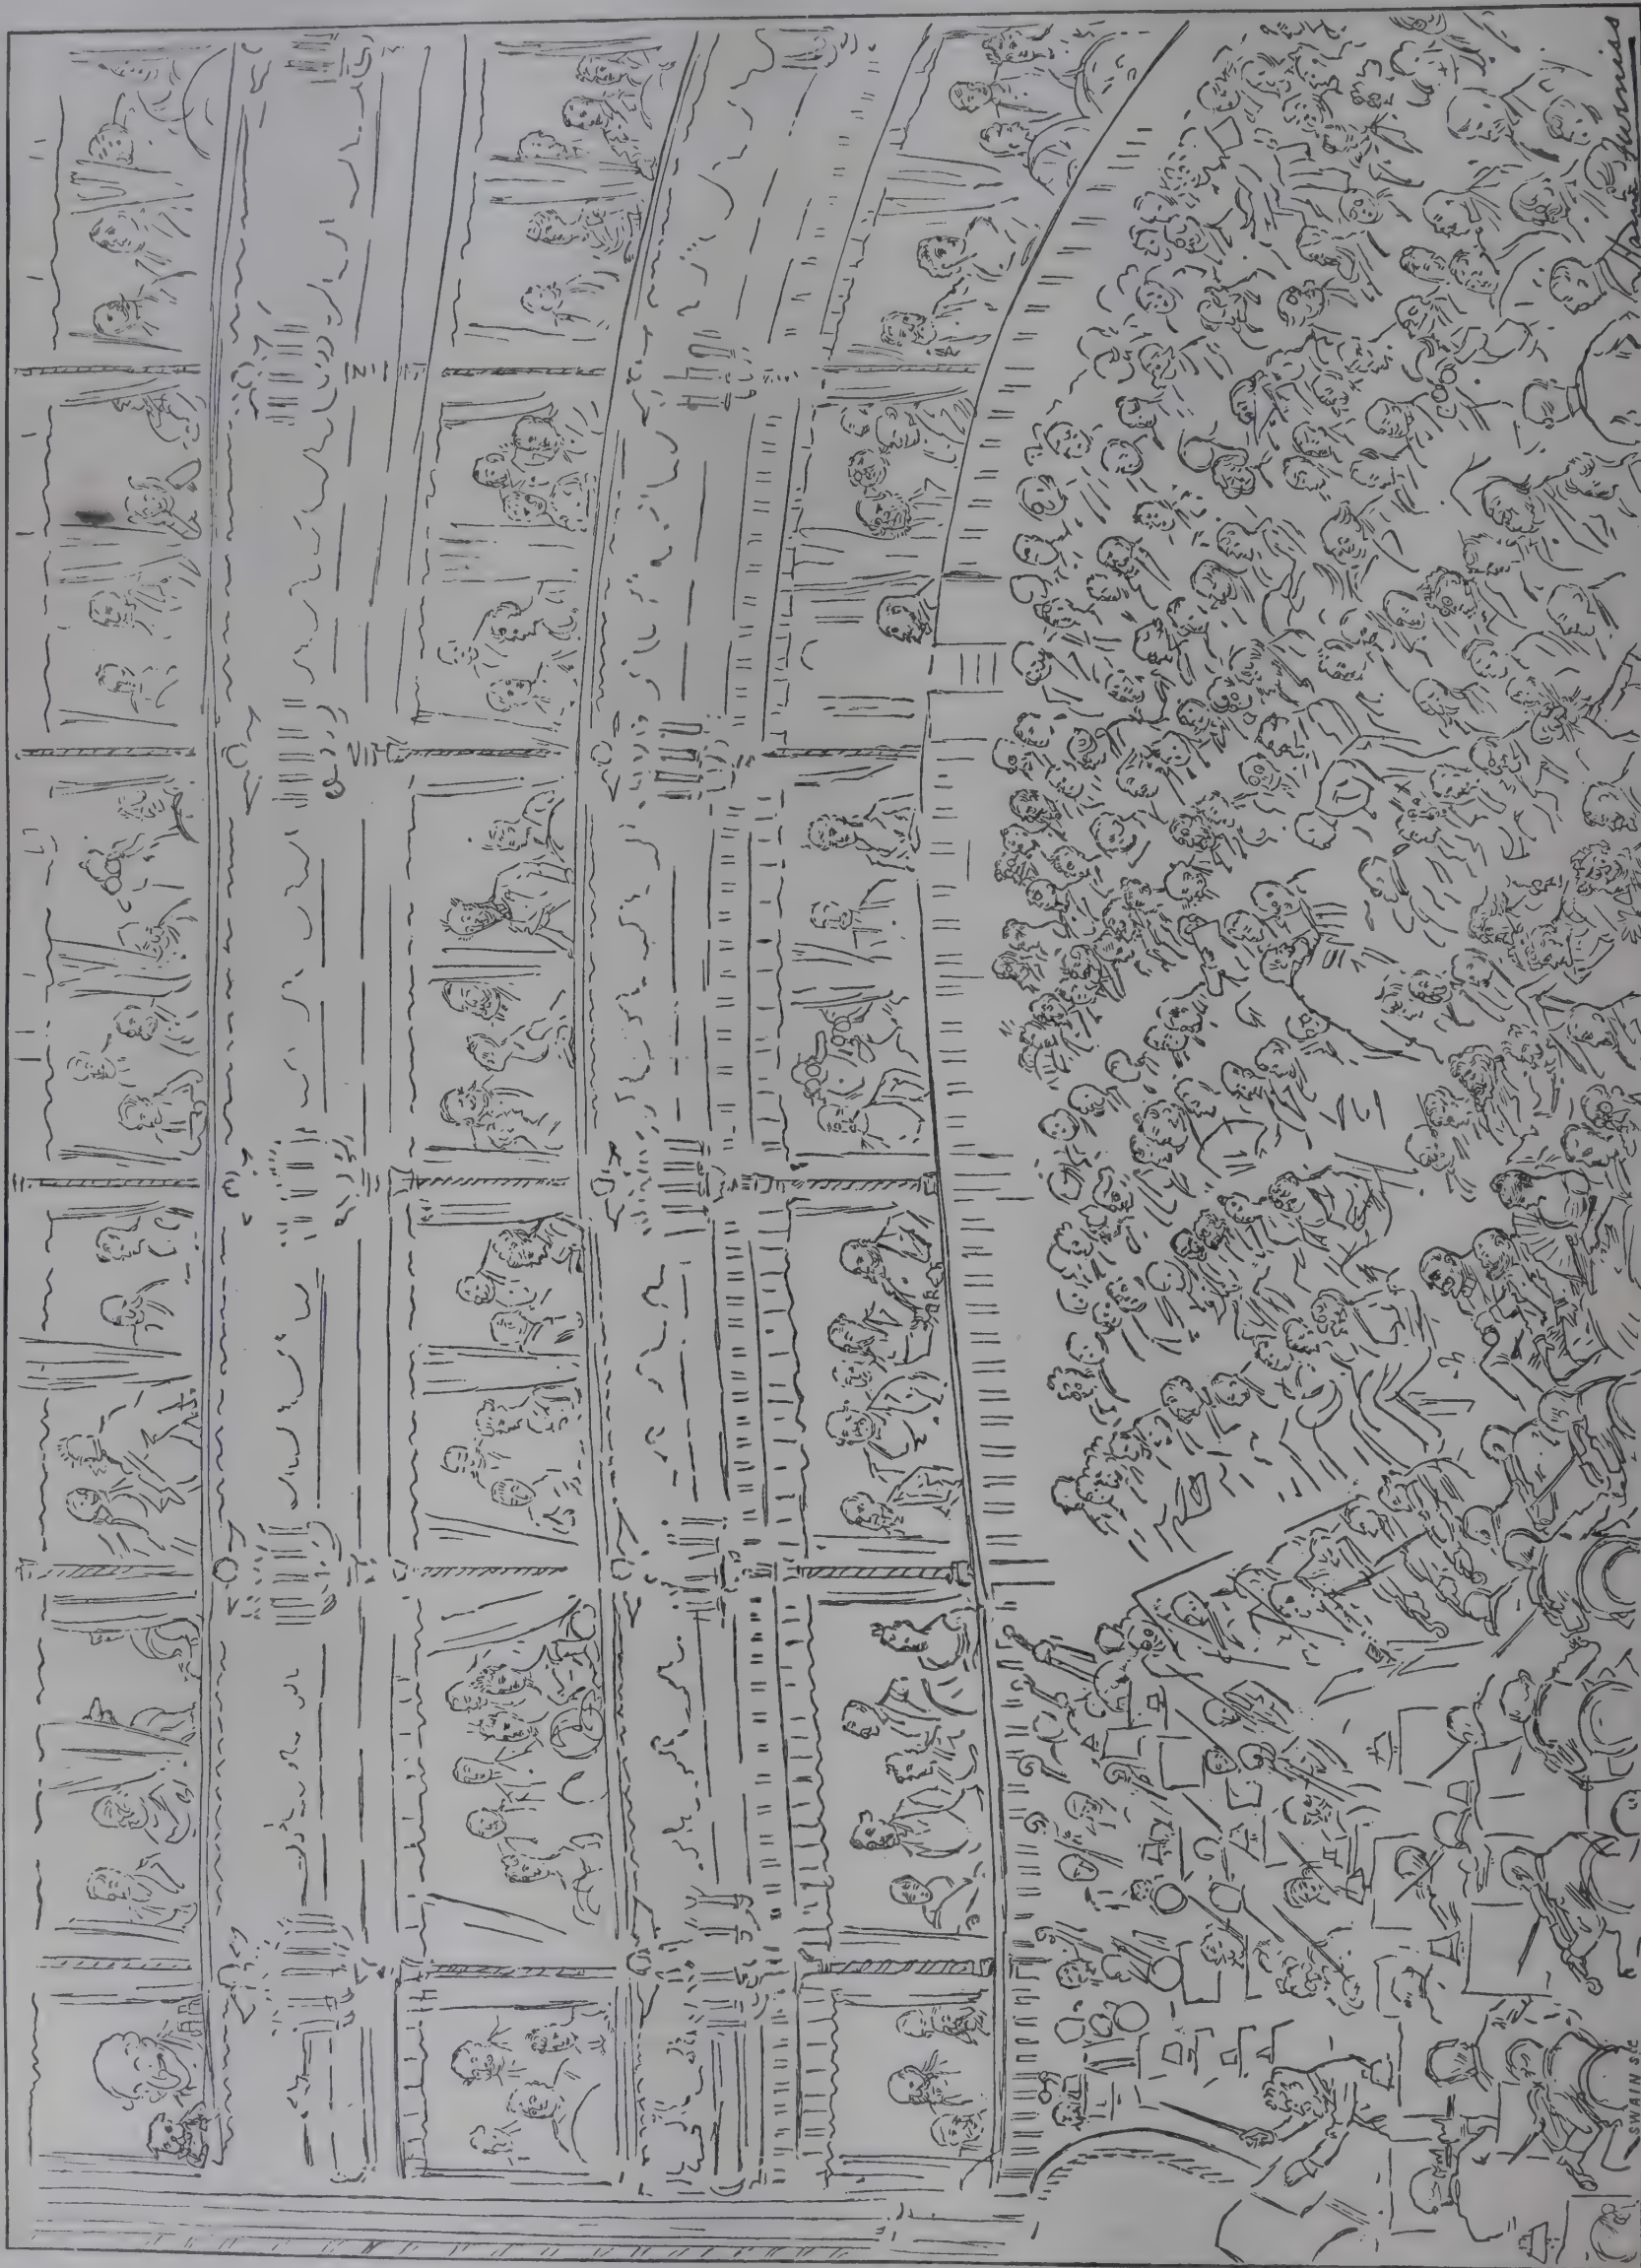 Harry Furniss
SWAIN Sc